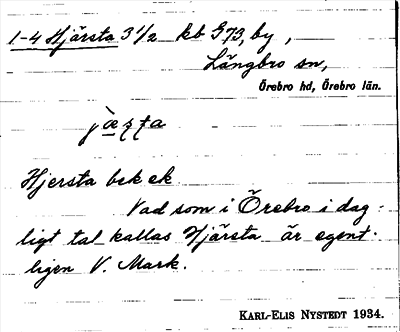 1-4 Hjärsta 3 1/2 kb G73, by,
Längbro sn,
Örebro hd, Örebro län.
Hjersta bek ek
Vad som i Örebro i dag-
ligt tal kallas Hjärsta är egent-
ligen V. Mark.
KARL-ELIS NYSTEDT 1934.